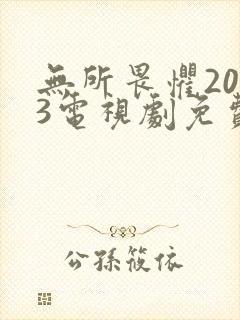 無所畏懼20
3電視劇免費
公孫筱依